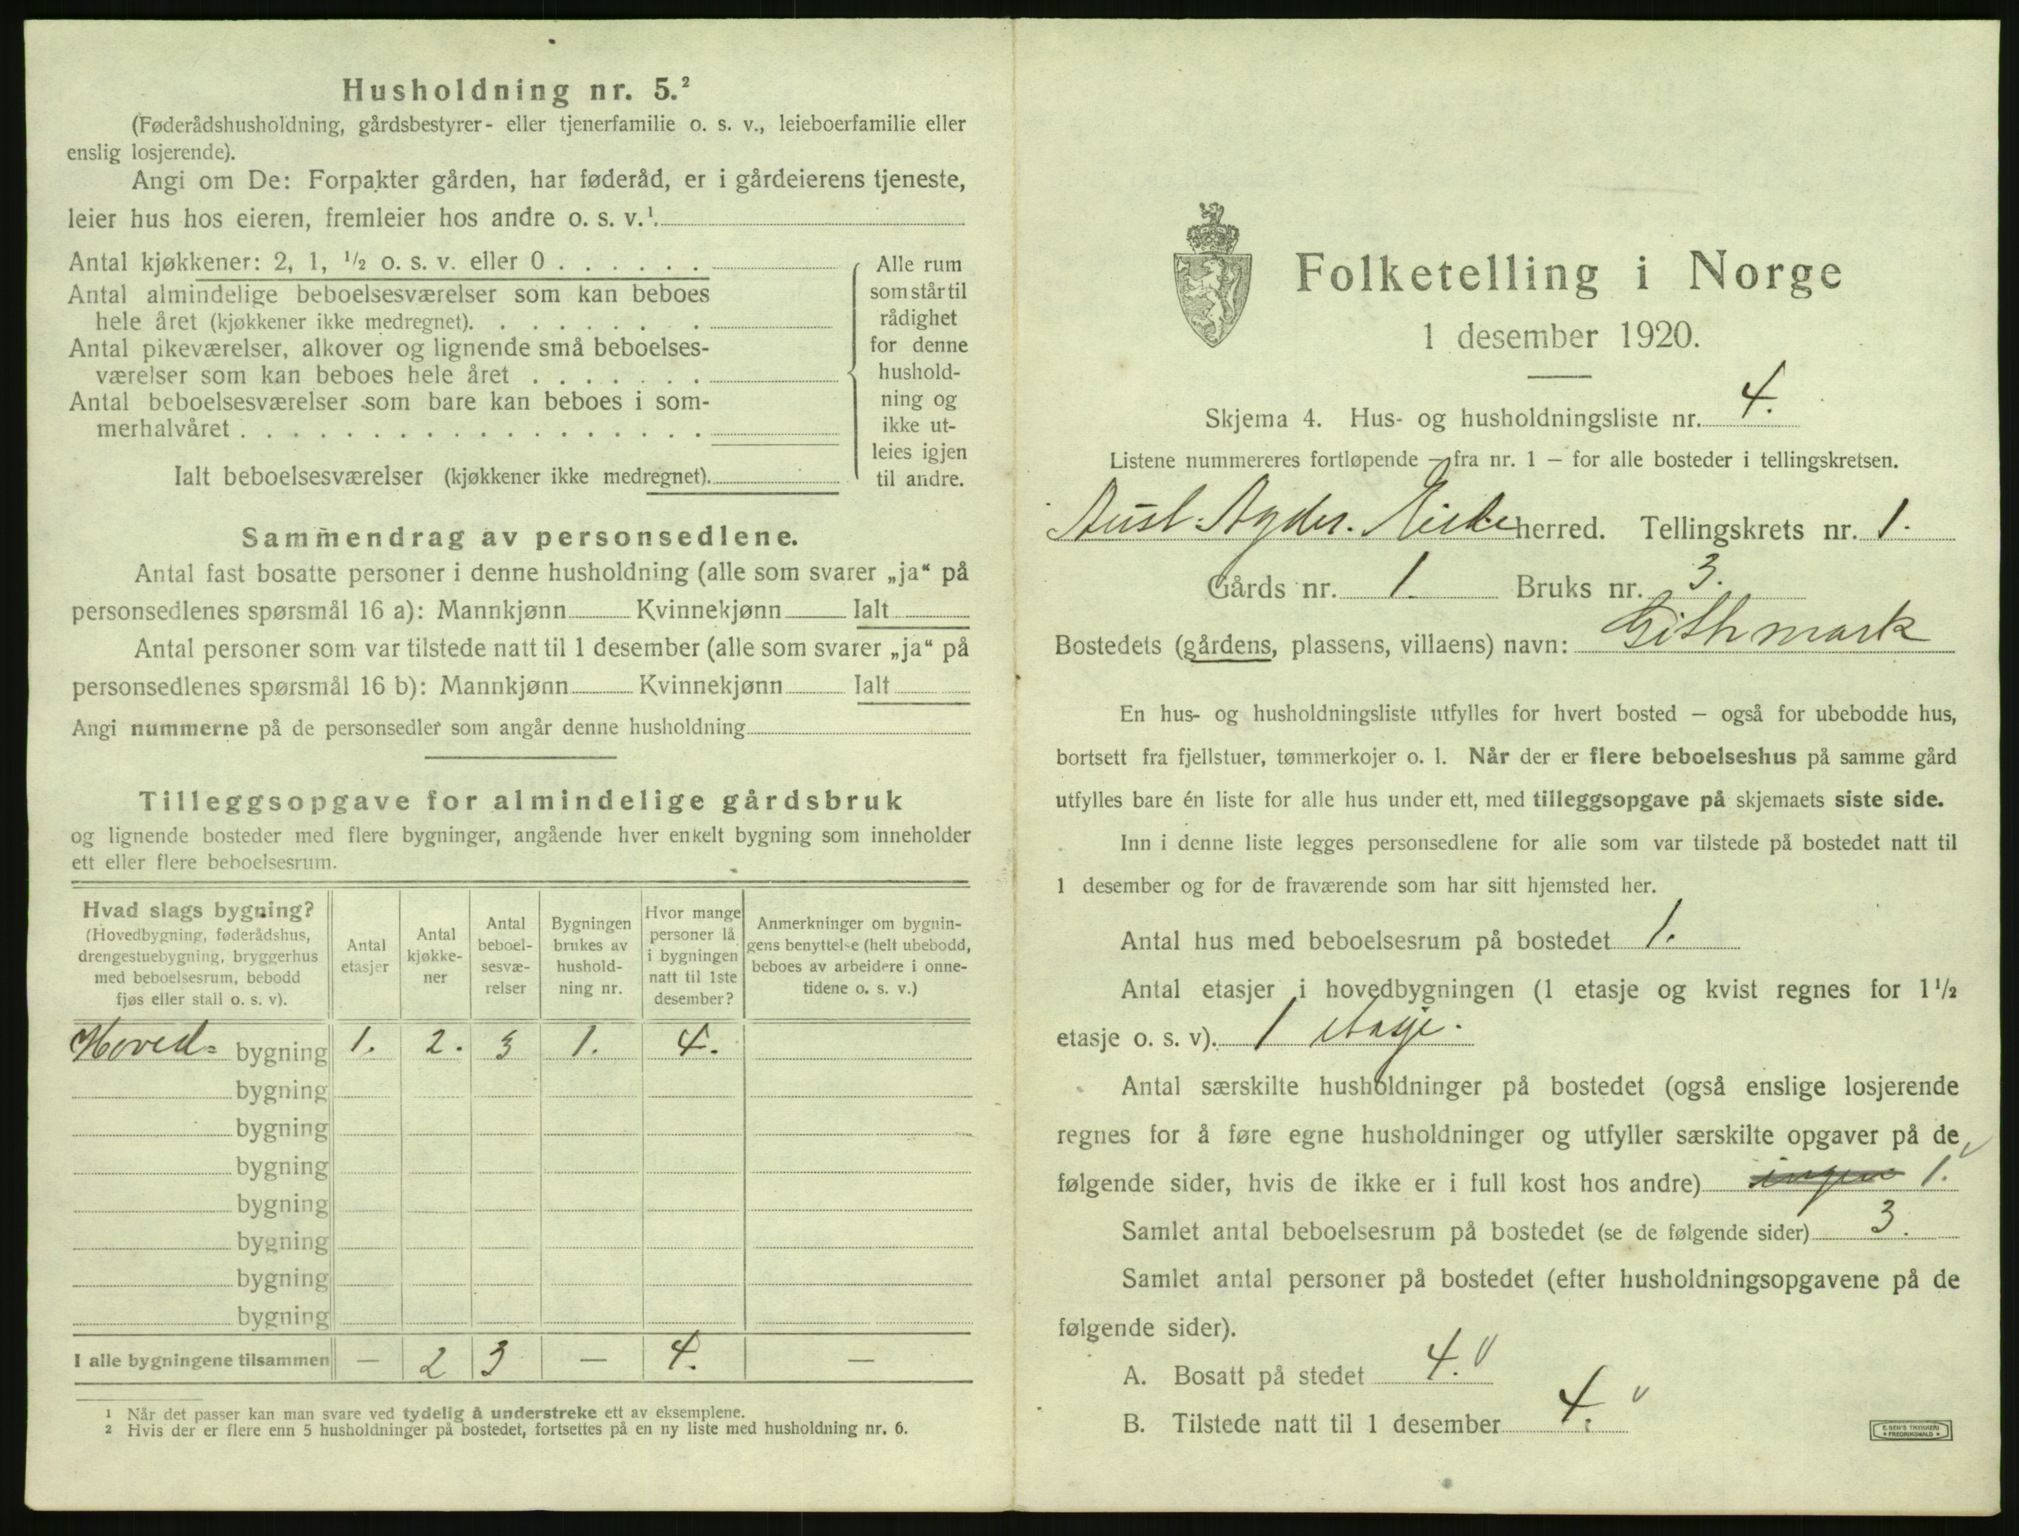 Husholdning nr. 5.²
(Føderådshusholdning, gårdsbestyrer- eller tjenerfamilie o. s. v., leieboerfamilie eller
enslig losjerende).
Angi om De: Forpakter gården, har føderåd, er i gårdeierens tjeneste,
leier hus hos eieren, fremleier hos andre o. s. v.¹
Antal kjøkkener: 2, 1, ½ o. s. v. eller 0 . . . . . .
Antal almindelige beboelsesværelser som kan beboes
hele året (kjøkkener ikke medregnet). . . . . . . . .
Antal pikeværelser, alkover og lignende små beboelses-
værelser som kan beboes hele året . . . . . . .
Antal beboelsesværelser som bare kan beboes i som-
merhalvåret . . . . . . . . . . . . . . . . . .
Ialt beboelsesværelser (kjøkkener ikke medregnet).
Alle rum
som står til
rådighet
for denne
hushold-
ning og
ikke ut-
leies igjen
til andre.
Sammendrag av personsedlene.
Antal fast bosatte personer i denne husholdning (alle som svarer „ja“ på
personsedlenes spørsmål 16 a): Mannkjønn Kvinnekjønn Ialt
Antal personer som var tilstede natt til 1 desember (alle som svarer „ja“ på
personsedlenes spørsmål 16 b): Mannkjønn Kvinnekjønn Ialt
Angi nummerne på de personsedler som angår denne husholdning
Tilleggsopgave for almindelige gårdsbruk
og lignende bosteder med flere bygninger, angående hver enkelt bygning som inneholder
ett eller flere beboelsesrum.
Hvad slags bygning?
(Hovedbygning, føderådshus,
drengestuebygning, bryggerhus
med beboelsesrum, bebodd
fjøs eller stall o. s. v).
Antal
etasjer
Antal
kjøkke-
ner
Antal
beboel-
sesvæ-
relser
Bygningen
brukes av
hushold-
ning nr.
Hvor mange
personer lå
i bygningen
natt til 1ste
desember?
Anmerkninger om bygnin-
gens benyttelse (helt ubebodd,
beboes av arbeidere i onne-
tidene o. s. v.)
Hoved- bygning 1. 2. 3 1. 4.
bygning
bygning
bygning
bygning
bygning
bygning
bygning
I alle bygningene tilsammen — 2 3 — 4. —
¹ Når det passer kan man svare ved tydelig å understreke ett av eksemplene.
² Hvis der er flere enn 5 husholdninger på bostedet, fortsettes på en ny liste med husholdning nr. 6.
Folketelling i Norge
1 desember 1920.
Skjema 4. Hus- og husholdningsliste nr. 4.
Listene nummereres fortløpende – fra nr. 1 – for alle bosteder i tellingskretsen.
Aust-Agder. Eide herred. Tellingskrets nr. 1.
Gårds nr. 1. Bruks nr. 3.
Bostedets (gårdens, plassens, villaens) navn: Githmark
En hus- og husholdningsliste utfylles for hvert bosted – også for ubebodde hus,
bortsett fra fjellstuer, tømmerkojer o. l. Når der er flere beboelseshus på samme gård
utfylles bare én liste for alle hus under ett, med tilleggsopgave på skjemaets siste side.
Inn i denne liste legges personsedlene for alle som var tilstede på bostedet natt til
1 desember og for de fraværende som har sitt hjemsted her.
Antal hus med beboelsesrum på bostedet 1.
Antal etasjer i hovedbygningen (1 etasje og kvist regnes for 1½
etasje o. s. v). 1 etasje.
Antal særskilte husholdninger på bostedet (også enslige losjerende
regnes for å føre egne husholdninger og utfyller særskilte opgaver på de
følgende sider, hvis de ikke er i full kost hos andre) ingen 1.
Samlet antal beboelsesrum på bostedet (se de følgende sider) 3.
Samlet antal personer på bostedet (efter husholdningsopgavene på de
følgende sider).
A. Bosatt på stedet 4.
B. Tilstede natt til 1 desember 4.